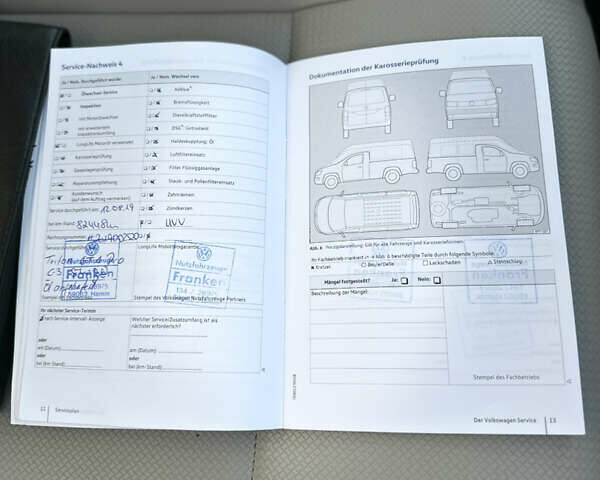 Service-Nachweis 4
Ja / Nein, Durchgeführt wurde:
Ja / Nein, Wechsel von:
Ölwechsel-Service
AdBlue®
Inspektion
Bremsflüssigkeit
mit Motorölwechsel
Dieselkraftstofffilter
mit erweitertem
Inspektionsumfang
DSG®, Getriebeöl
LongLife Motoröl verwendet
Haldexkupplung: Öl
Karosserieprüfung
Luftfiltereinsatz
Gasanlagenprüfung
Filter Flüssiggasanlage
Reparaturempfehlung
Staub- und Pollenfiltereinsatz
Kundenwunsch
(auf dem Auftrag vermerken)
Zahnriemen
Zündkerzen
Service durchgeführt am: 12.08.19
bei km-Stand: 82448km
Rechnungsnummer:
LongLife Mobilitätsgarantie
Nutzfahrzeuge
Franken
Franken
Stempel des Volkswagen Nutzfahrzeuge Partners
Ihr nächster Service-Termin
nach Service-Intervall-Anzeige
oder
am (Datum)
oder
bei (km-Stand)
Welcher Service/Zusatzumfang ist als
nächster erforderlich?
am (Datum)
oder
bei (km-Stand)
12 Serviceplan
Dokumentation der Karosserieprüfung
Abb. 4 Prinzipdarstellung: Gilt für alle Fahrzeuge und Karosserieformen.
Beule/Delle
Lackschaden
Steinschlag
Kratzer
Mängel festgestellt?
Ja:
Nein:
Beschreibung der Mängel:
Stempel des Fachbetriebs
Der Volkswagen Service 13